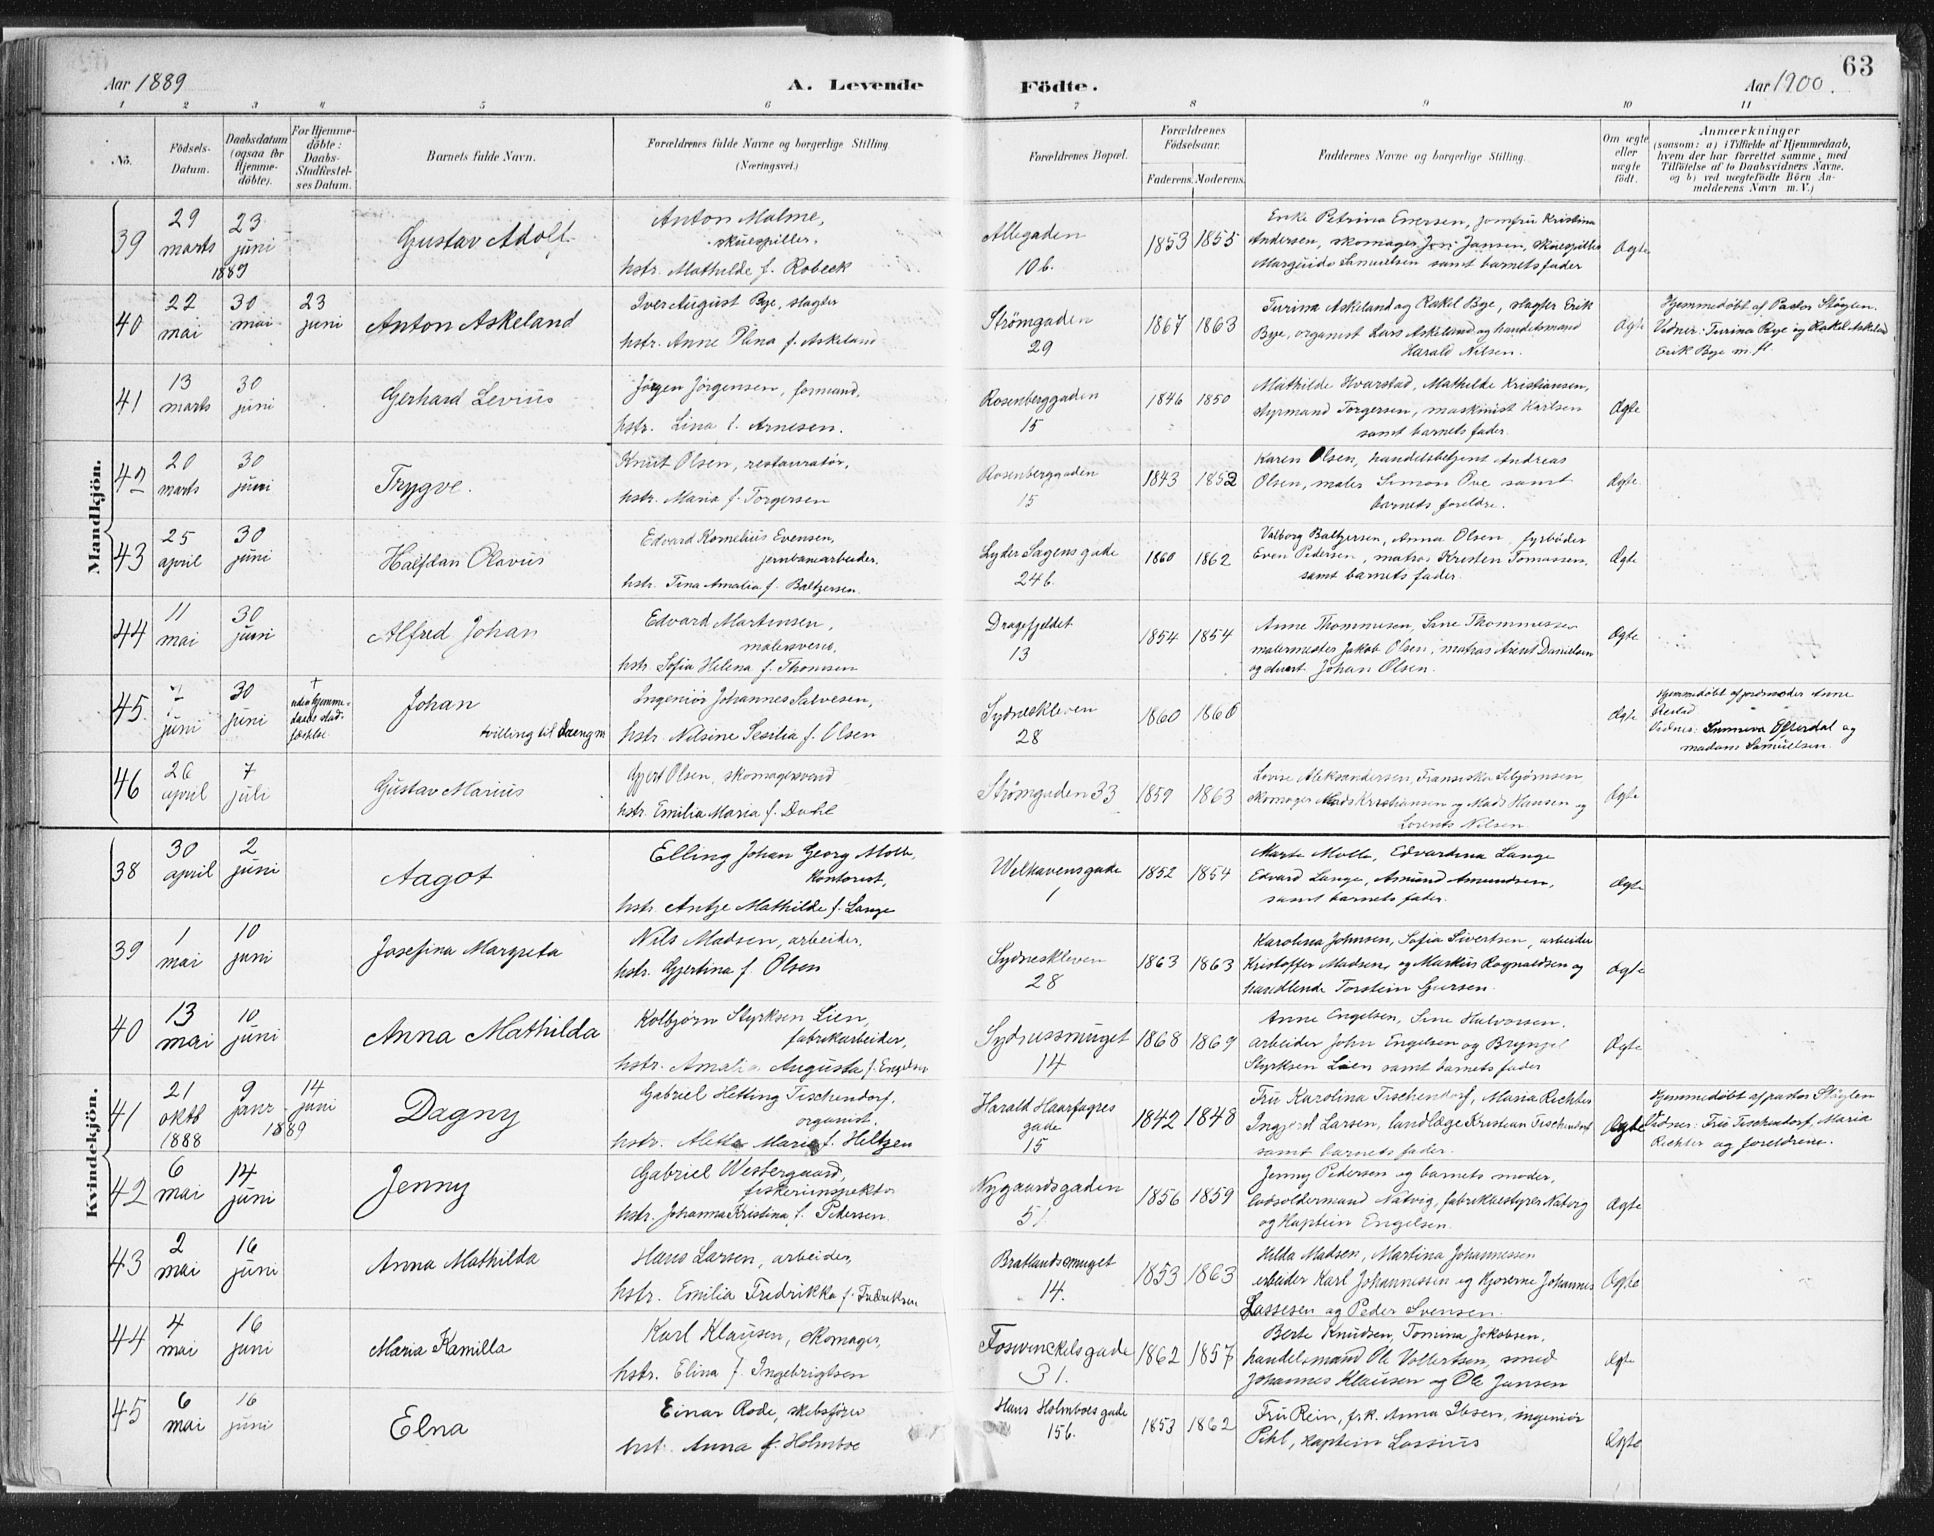 63
Aar 1889
A. Levende
Födte.
Aar 1900
1 2 3 4 5 6 7 8 9 10 11
No.
Födsels-Datum.
Daabsdatum (ogsaa for Hjemme-döbte).
For Hjemme-döbte: Daabs-Stadfæstel-ses Datum.
Barnets fulde Navn.
Forældrenes fulde Navne og borgerlige Stilling (Næringsvei.)
Forældrenes Bopæl.
Forældrenes Födselsaar.
Faderens. Moderens.
Faddernes Navne og borgerlige Stilling.
Om ægte eller uægte födt.
Anmærkninger
(saasom: a) i Tilfælde af Hjemmedaab, hvem der har forrettet samme, med Tilföielse af to Daabsvidners Navne. og b) ved uægtefödte Börn An-melderens Navn m. V.)
Mandkjön.
39
29 marts
23 juni 1889
Gustav Adolf
Anton Malme, skuespiller,
hstr. Mathilde f. Robeck
Allegaden 10 b.
1853 1855
Enke Petrina Eversen, jomfru Kristina
Andersen, skomager Jansen, skuespiller
Samuelsen samt barnets fader
Ægte
40
22 mai
30 mai
23 juni
Anton Askeland
Iver August Bye, slagter
hstr. Anne f. Askeland
Strömgaden 29
1867 1863
Turina Askeland og Rakel Bye, slagter Erik
Bye, organist Lars Askeland og handelsmand
Harald Nilsen.
Ægte
Hjemmedöbt af Pastor Stöylen
Vidner: Turina Bye og Rakel Askeland
Erik Bye m. fl.
41
13 marts
30 juni
Gerhard Levius
Jörgen Jörgensen, formand,
hstr. Lina f. Arnesen.
Rosenberggaden 15
1846 1850
Mathilde Hvarstad, Mathilde Kristiansen,
styrmand Torgersen, maskinist Karlsen
samt barnets fader.
Ægte
42
20 marts
30 juni
Trygve.
Knut Olsen, restauratör,
hstr. Maria f. Torgersen
Rosenberggaden 15
1843 1852
Karen Olsen, handelsbetjent Andreas
Olsen, maler Simon Ove samt
barnets foreldre.
Ægte
43
25 april
30 juni
Halfdan Olavus
Edvard Kornelius Evensen,
jernbanearbeider,
hstr. Tina Amalia f. Baltzersen.
Lyder Sagens gade 24 b.
1860 1862
Valborg Baltzersen, Anna Olsen, fyrböder
Even Pedersen, matros Kristen Tomassen,
samt barnets fader.
Ægte
44
11 mai
30 juni
Alfred Johan
Edvard Martinsen,
malersvend,
hstr. Sofia Helena f. Thomsen
Dragefjeldet 13
1854 1854
Anne Thommesen, Sine Thommessen
malermester Jakob Olsen, matros Arent Danielsen
Johan Olsen.
Ægte
45.
7 juni
30 juni
+ uden hjemme-daabs stad-fæstelse.
Johan
tvilling til
Ingeniör Johannes Salvesen,
hstr. Nilsine Sesilia f. Olsen
Sydneskleven 28
1860 1860
Ægte
Hjemmedöbt af jordmoder Anne
Vidner: Sunniva Efterdal og
madam Samuelsen.
46
26 april
7 juli
Gustav Marius
Gjert Olsen, skomagersvend
hstr. Emilia Maria f. Dahl
Strömgaden 33
1859 1863
Lovise Aleksandersen, Fransiska
skomager Mads Kristiansen og Mads Hansen og
Lorents Nilsen
Ægte
Kvindekjön.
38
30 april
2 juni
Aagot
Elling Johan Georg Molle,
kontorist,
hstr. Antje Mathilde f. Lange
Welhavensgade 1
1852 1854
Marta Molle, Edvardina Lange
Edvard Lange, Amund Amundsen,
samt barnets fader.
Ægte
39
1 mai
10 juni
Josefina Margreta
Nils Madsen, arbeider,
hstr. Gjertina f. Olsen
Sydneskleven 28
1863 1863
Karolina Johnsen, Sofia Sivertsen, arbeider
Kristoffer Madsen og Markus Rognaldsen og
handlende Torstein
Ægte
40
13 mai
10 juni
Anna Mathilda
Kolbjörn Styrksen Lien,
fabrikarbeider,
hstr. Amalia Augusta f. Engelsen
14
1868 1869
Anne Engelsen, Sine Halvorsen,
arbeider John Engelsen og Brynjel
Styrksen Lien samt barnets fader
Ægte
41
21 oktb 1888
9 janr 1889
14 juni
Dagny
Gabriel Hetting Tischendorf,
organist,
hstr. Aletta Maria f. Heltzen
Harald Haarfagres gade 15
1842 1848
Fru Karolina Tischendorf, Maria Richter
Larsen, landlæge Kristian Tischendorf
samt barnets fader.
Ægte
Hjemmedöbt af pastor Stöylen
Vidner: Fru Tischendorf, Maria
Richter og foreldrene.
42
6 mai
14 juni
Jenny
Gabriel Westergaard,
fiskeriinspektör
hstr. Johanna Kristina f. Pedersen.
Nygaardsgaden 51
1856 1859
Jenny Pedersen og barnets moder,
lodsoldermand Natvig, fabrikbestyrer Natvig
og kaptein Engelsen.
Ægte
43
2 mai
16 juni
Anna Mathilda
Hans Larsen, arbeider,
hstr. Emilia Fredrikka f. Fredriksen
Bratlandsmuget 14.
1853 1863
Hilda Madsen, Martina Johannessen
arbeider Karl Johannessen og Johannes
Lassesen og Peder Svensen.
Ægte
44
4 mai
16 juni
Maria Kamilla
Karl Klausen, skomager,
hstr. Elina f. Ingebrigtsen
Fosswinckelsgade 31.
1862 1857
Berte Knudsen, Tomina Jakobsen,
handelsmand Ole Vollertsen, smed
Johannes Klausen og Ole Jansen
Ægte
45
6 mai
16 juni
Elna
Einar Rode, skibsförer
hst. Anna f. Holmboe
Hans Holmboes gade 15 b.
1853 1862
Fru Rein, frk. Anna Ibsen, ingeniör
Pihl, kaptein Lassius
Ægte